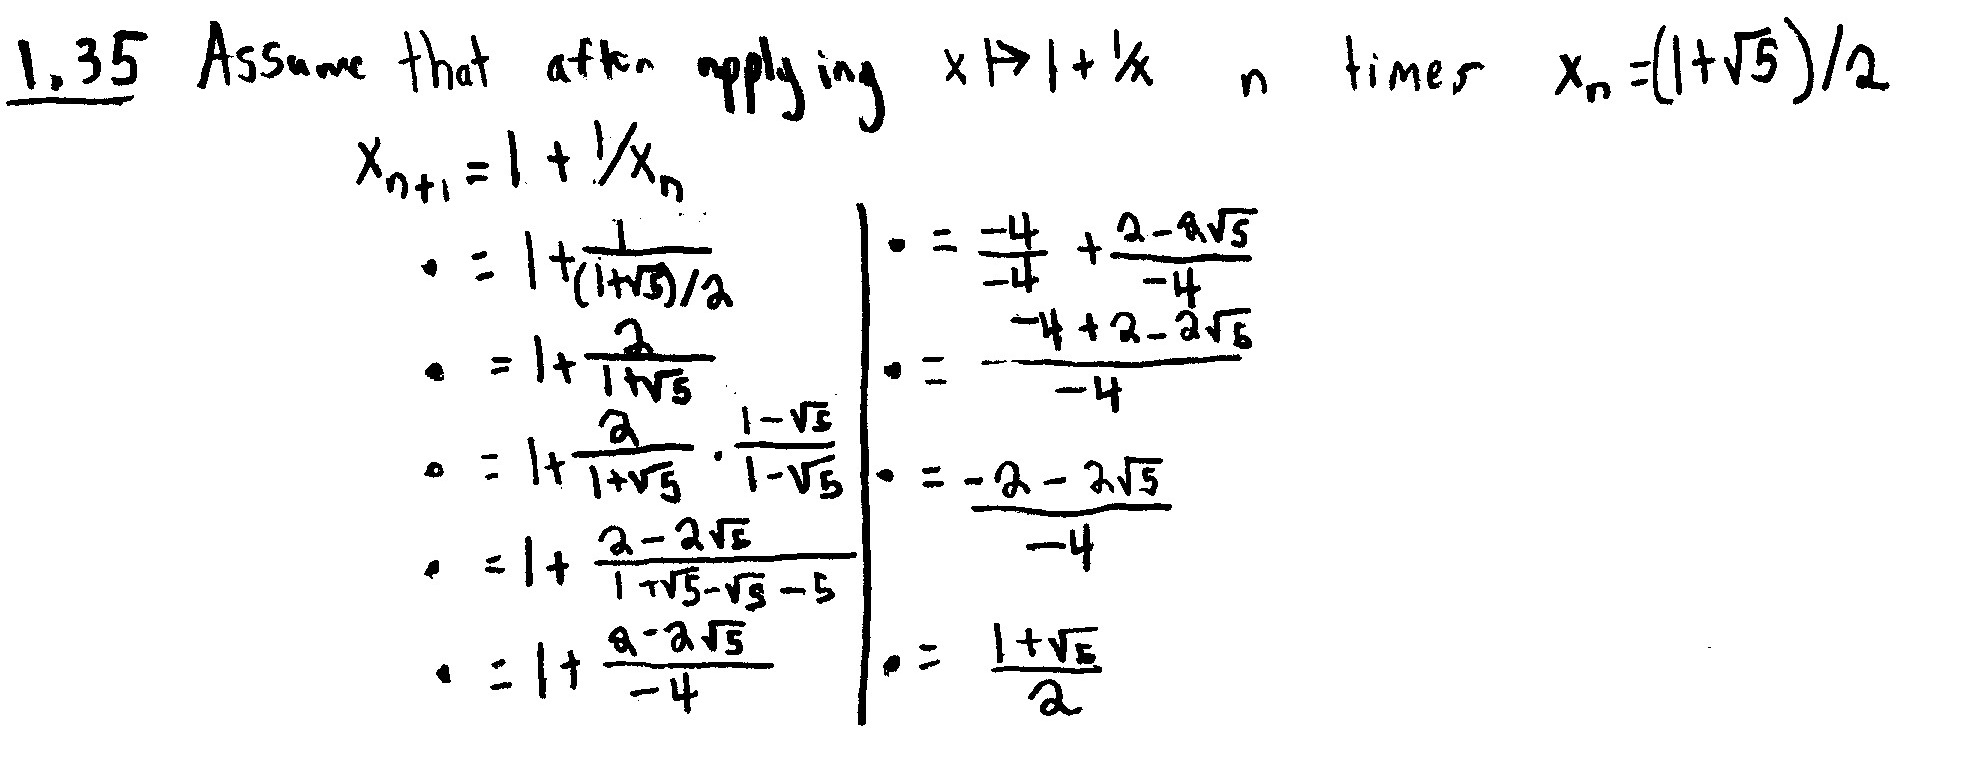 1.35 Assume that after applying x ↦ 1 + 1/x n times xₙ = (1+√5)/2
xₙ₊₁ = 1 + 1/xₙ
• = 1 + 1/((1+√5)/2)
• = 1 + 2/(1+√5)
• = 1 + 2/(1+√5) · (1-√5)/(1-√5)
• = 1 + (2-2√5)/(1+√5-√5-5)
• = 1 + (2-2√5)/-4
• = -4/-4 + (2-2√5)/-4
• = (-4+2-2√5)/-4
• = (-2-2√5)/-4
• = (1+√5)/2